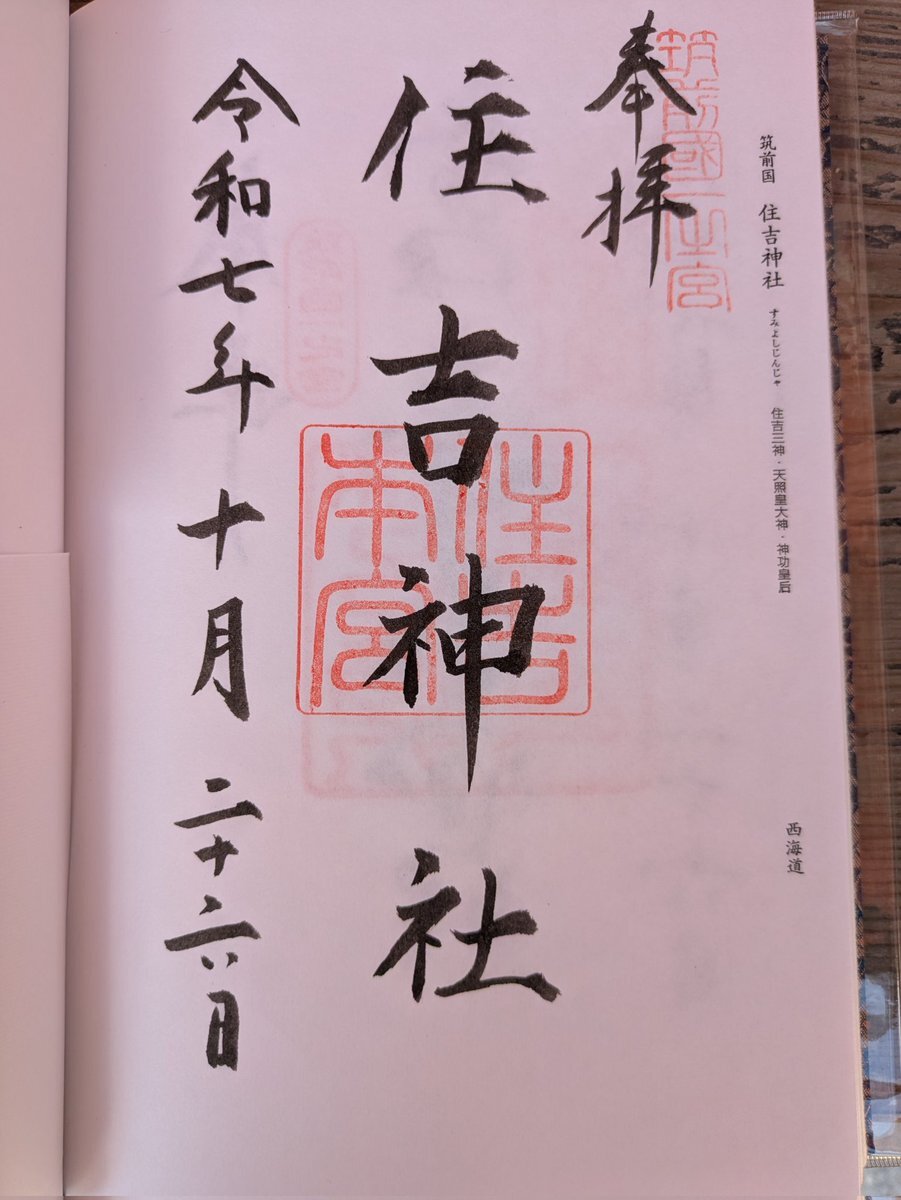 筑前国 住吉神社 すみよしじんじゃ 住吉三神・天照皇大神・神功皇后
西海道
筑前國一之宮
奉拝
住吉神社
住吉本宮
令和七年十月二十六日